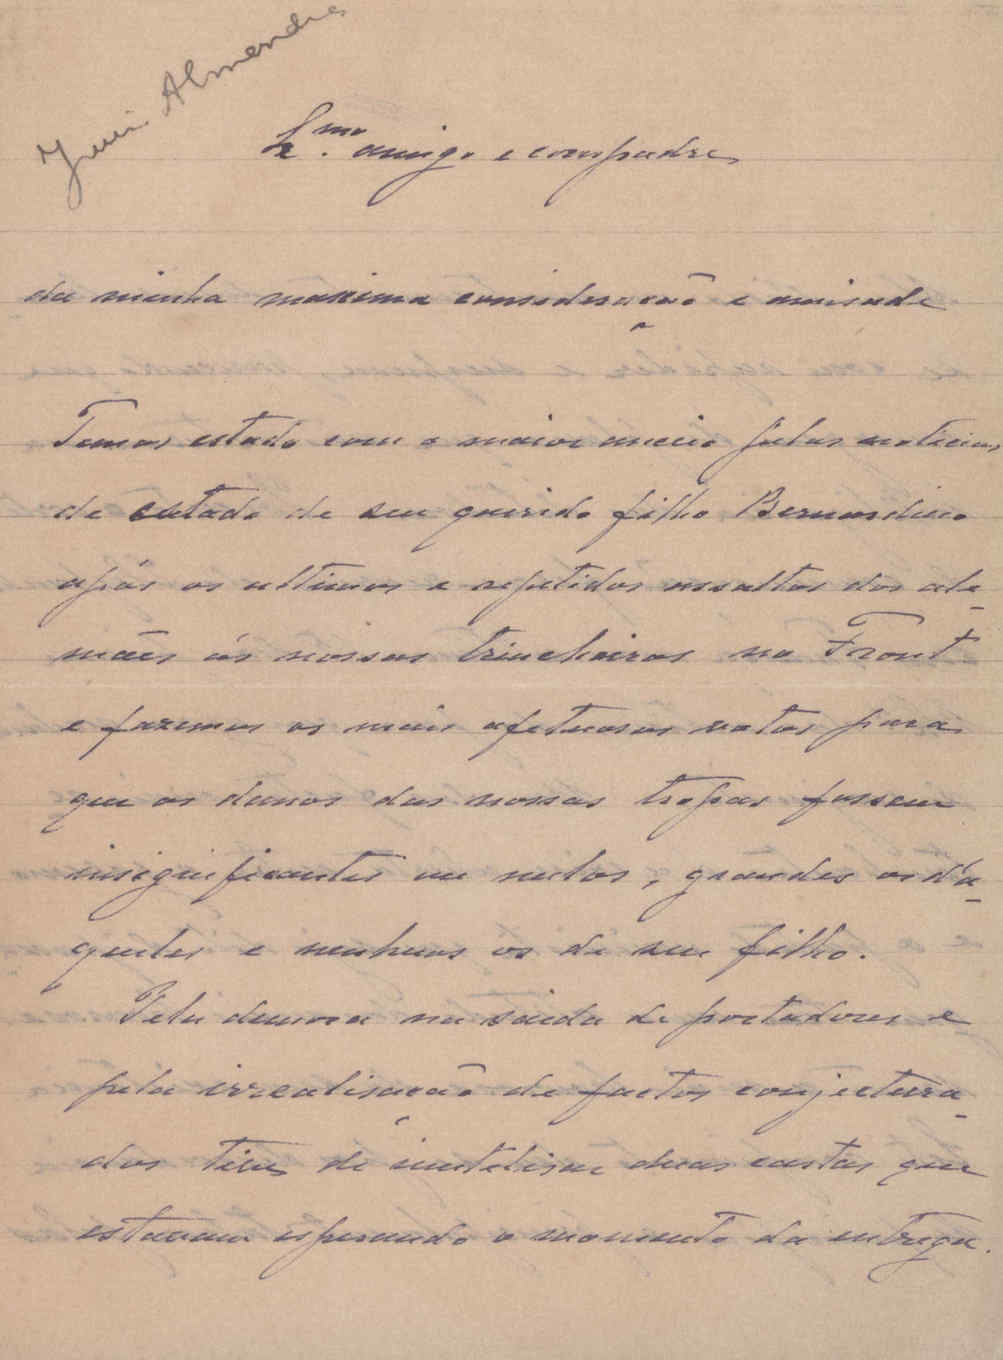 Almendra
Ex.mo amigo e compadre
da minha maxima consideração e amisade
Temos estado com o maior anceio pelas noticias
de estado de seu querido filho Bernardino
após os ultimos e repetidos assaltos dos ale-
mães ás nossas trincheiras no Front
e fazemos os mais afetuosos votos para
que os danos das nossas tropas fossem
insignificantes ou nulos, grandes os da-
queles e nenhuns os de seu filho.
Pela demora na saida de portadores e
pela irrealisação de factos conjectura-
dos tive de inutilisar duas cartas que
estavam esperando o momento da entrega.